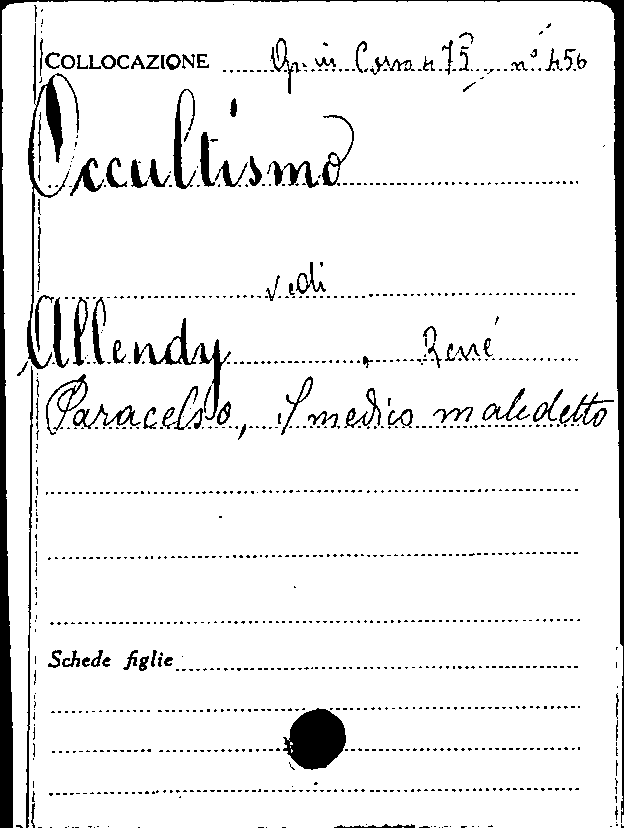 COLLOCAZIONE Op. in Corso 475 n° 456
Occultismo
vedi
Allendy, René
Paracelso, il medico maledetto
Schede figlie